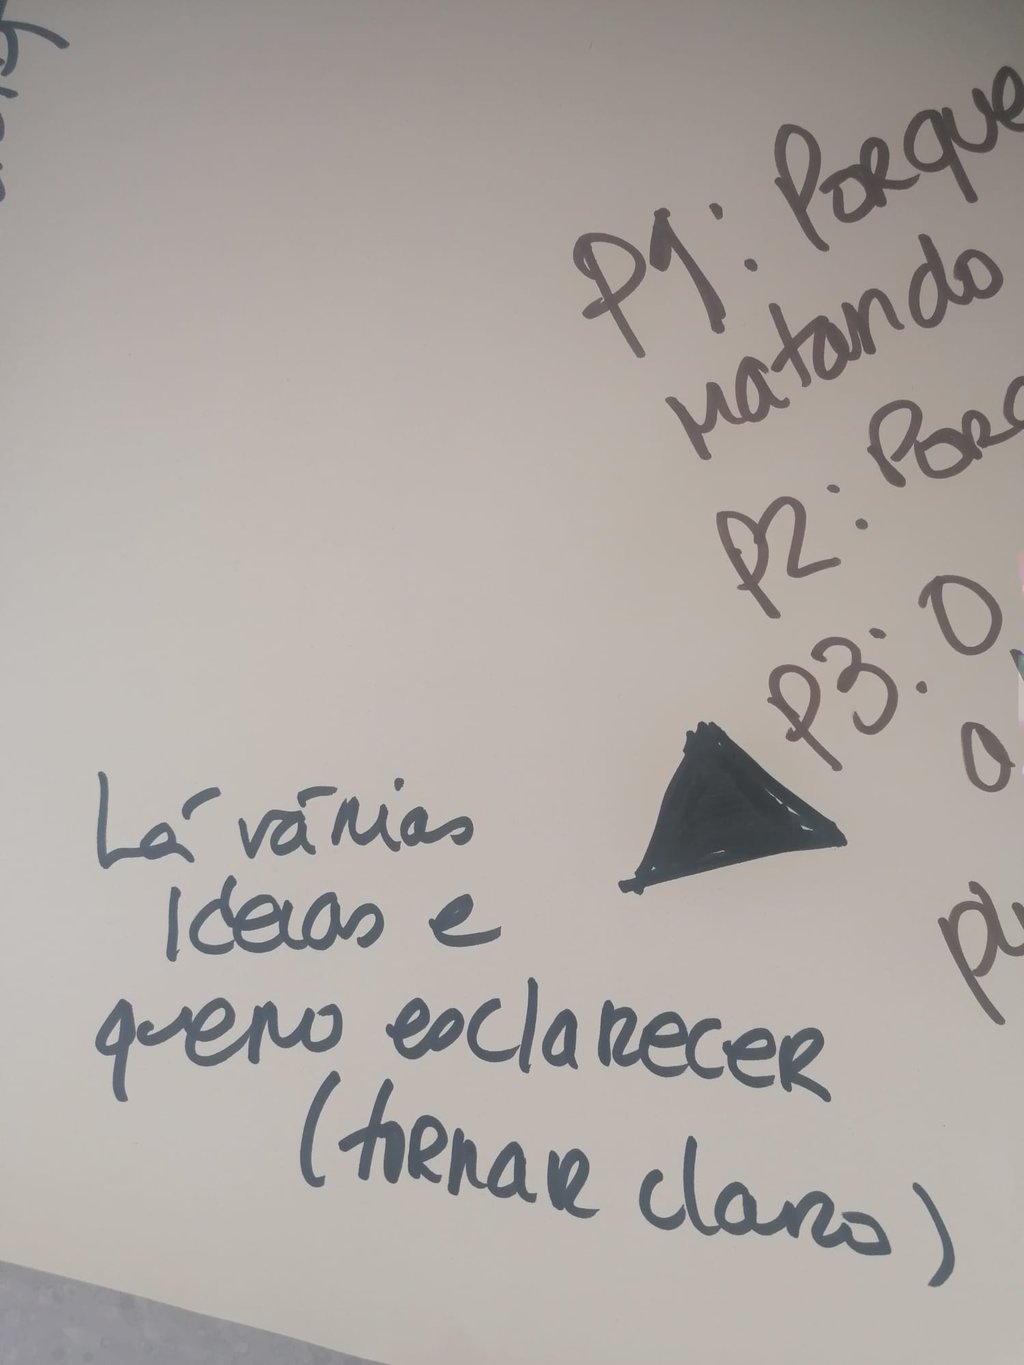 P1: Porque
matando
P2: Porq
P3: O
a
Lá várias
Ideias e
quero esclarecer
(tornar claro)